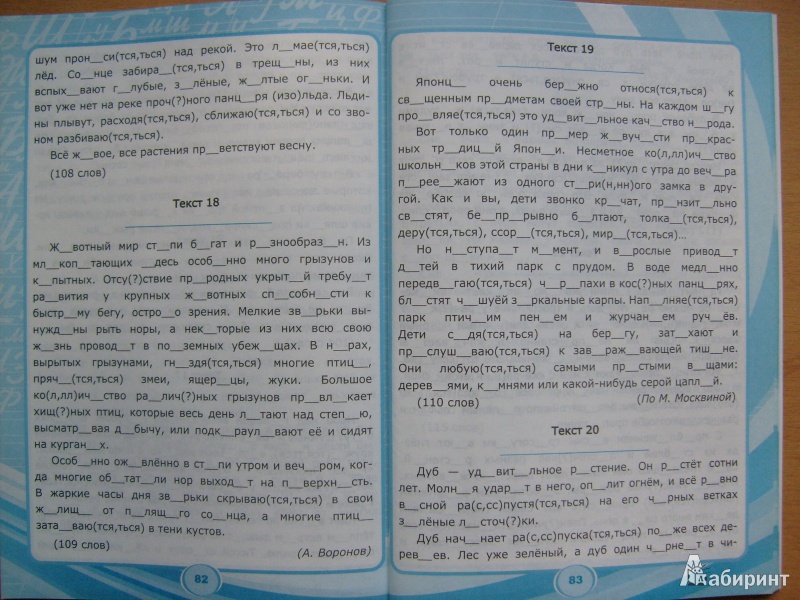 шум прон__си(тся,ться) над рекой. Это л__мае(тся,ться)
лёд. Со__нце забира__(тся,ться) в трещ__ны, из них
вспых__вают г__лубые, з__лёные, ж__лтые ог__ньки. И
вот уже нет на реке проч(?)ного панц__ря (изо)льда. Льди-
ны плывут, расходя(тся,ться), сближаю(тся,ться) и со зво-
ном разбиваю(тся,ться).
Всё ж__вое, все растения пр__ветствуют весну.
(108 слов)
Текст 18
Ж__вотный мир ст__пи б__гат и р__знообраз__н. Из
мл__коп__тающих __десь особ__нно много грызунов и
к__пытных. Отсу(?)ствие пр__родных укрыт__й требу__т
ра__вития у крупных ж__вотных сп__собн__сти к
быстр__му бегу, остро__о зрения. Мелкие зв__рьки вы-
нужд__ны рыть норы, а нек__торые из них всю свою
ж__знь провод__т в по__земных убеж__щах. В н__рах,
вырытых грызунами, гн__здя(тся,ться) многие птиц__,
пряч__(тся,ться) змеи, ящер__цы, жуки. Большое
ко(л,лл)ич__ство ра__лич(?)ных грызунов пр__вл__кает
хищ(?)ных птиц, которые весь день л__тают над степ__ю,
высматр__вая д__бычу, или подк__раул__вают её и сидят
на курган__х.
Особ__нно ож__влённо в ст__пи утром и веч__ром, ког-
да многие об__тат__ли нор выход__т на п__верхн__сть.
В жаркие часы дня зв__рьки скрываю(тся,ться) в свои
ж__лищ__ от п__лящ__го со__нца, а многие птиц__
зата__ваю(тся,ться) в тени кустов.
(109 слов)
(А. Воронов)
82
Текст 19
Японц__ очень бер__жно относя(тся,ться) к
св__щенным пр__дметам своей стр__ны. На каждом ш__гу
про__вляе(тся,ться) это уд__вит__льное кач__ство н__рода.
Вот только один пр__мер ж__вуч__сти пр__крас-
ных тр__диц__й Япон__и. Несметное ко(л,лл)ич__ство
школьн__ков этой страны в дни к__никул с утра до веч__ра
п__рее__жают из одного ст__ри(н,нн)ого замка в дру-
гой. Как и вы, дети звонко кр__чат, пр__нзит__льно
св__стят, бе__пр__рывно б__лтают, толка__(тся,ться),
деру(тся,ться), ссор__(тся,ться), мир__(тся,ться)...
Но н__ступа__т м__мент, и в__рослые привод__т
д__тей в тихий парк с прудом. В воде медл__нно
передв__гаю(тся,ться) ч__р__пахи в кос(?)ных панц__рях,
бл__стят ч__шуёй з__ркальные карпы. Нап__лняе(тся,ться)
парк птич__им пен__ем и журчан__ем руч__ёв.
Дети с__дя(тся,ться) на бер__гу, зат__хают и
пр__слуш__ваю(тся,ться) к зав__раж__вающей тиш__не.
Они любую(тся,ться) самыми пр__стыми в__щами:
дерев__ями, к__мнями или какой-нибудь серой цапл__й.
(110 слов)
(По М. Москвиной)
Текст 20
Дуб — уд__вит__льное р__стение. Он р__стёт сотни
лет. Молн__я удар__т в него, оп__лит огнём, и всё р__вно
в__сной ра(с,сс)пустя(тся,ться) на его ч__рных ветках
з__лёные л__сточ(?)ки.
Дуб нач__нает ра(с,сс)пуска(тся,ться) по__же всех де-
рев__ев. Лес уже зелёный, а дуб один ч__рне__т в чи-
83
Лабиринт